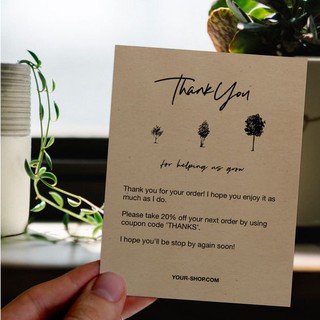 Thank You
for helping us grow
Thank you for your order! I hope you enjoy it as
much as I do.
Please take 20% off your next order by using
coupon code 'THANKS'.
I hope you'll be stop by again soon!
YOUR-SHOP.COM